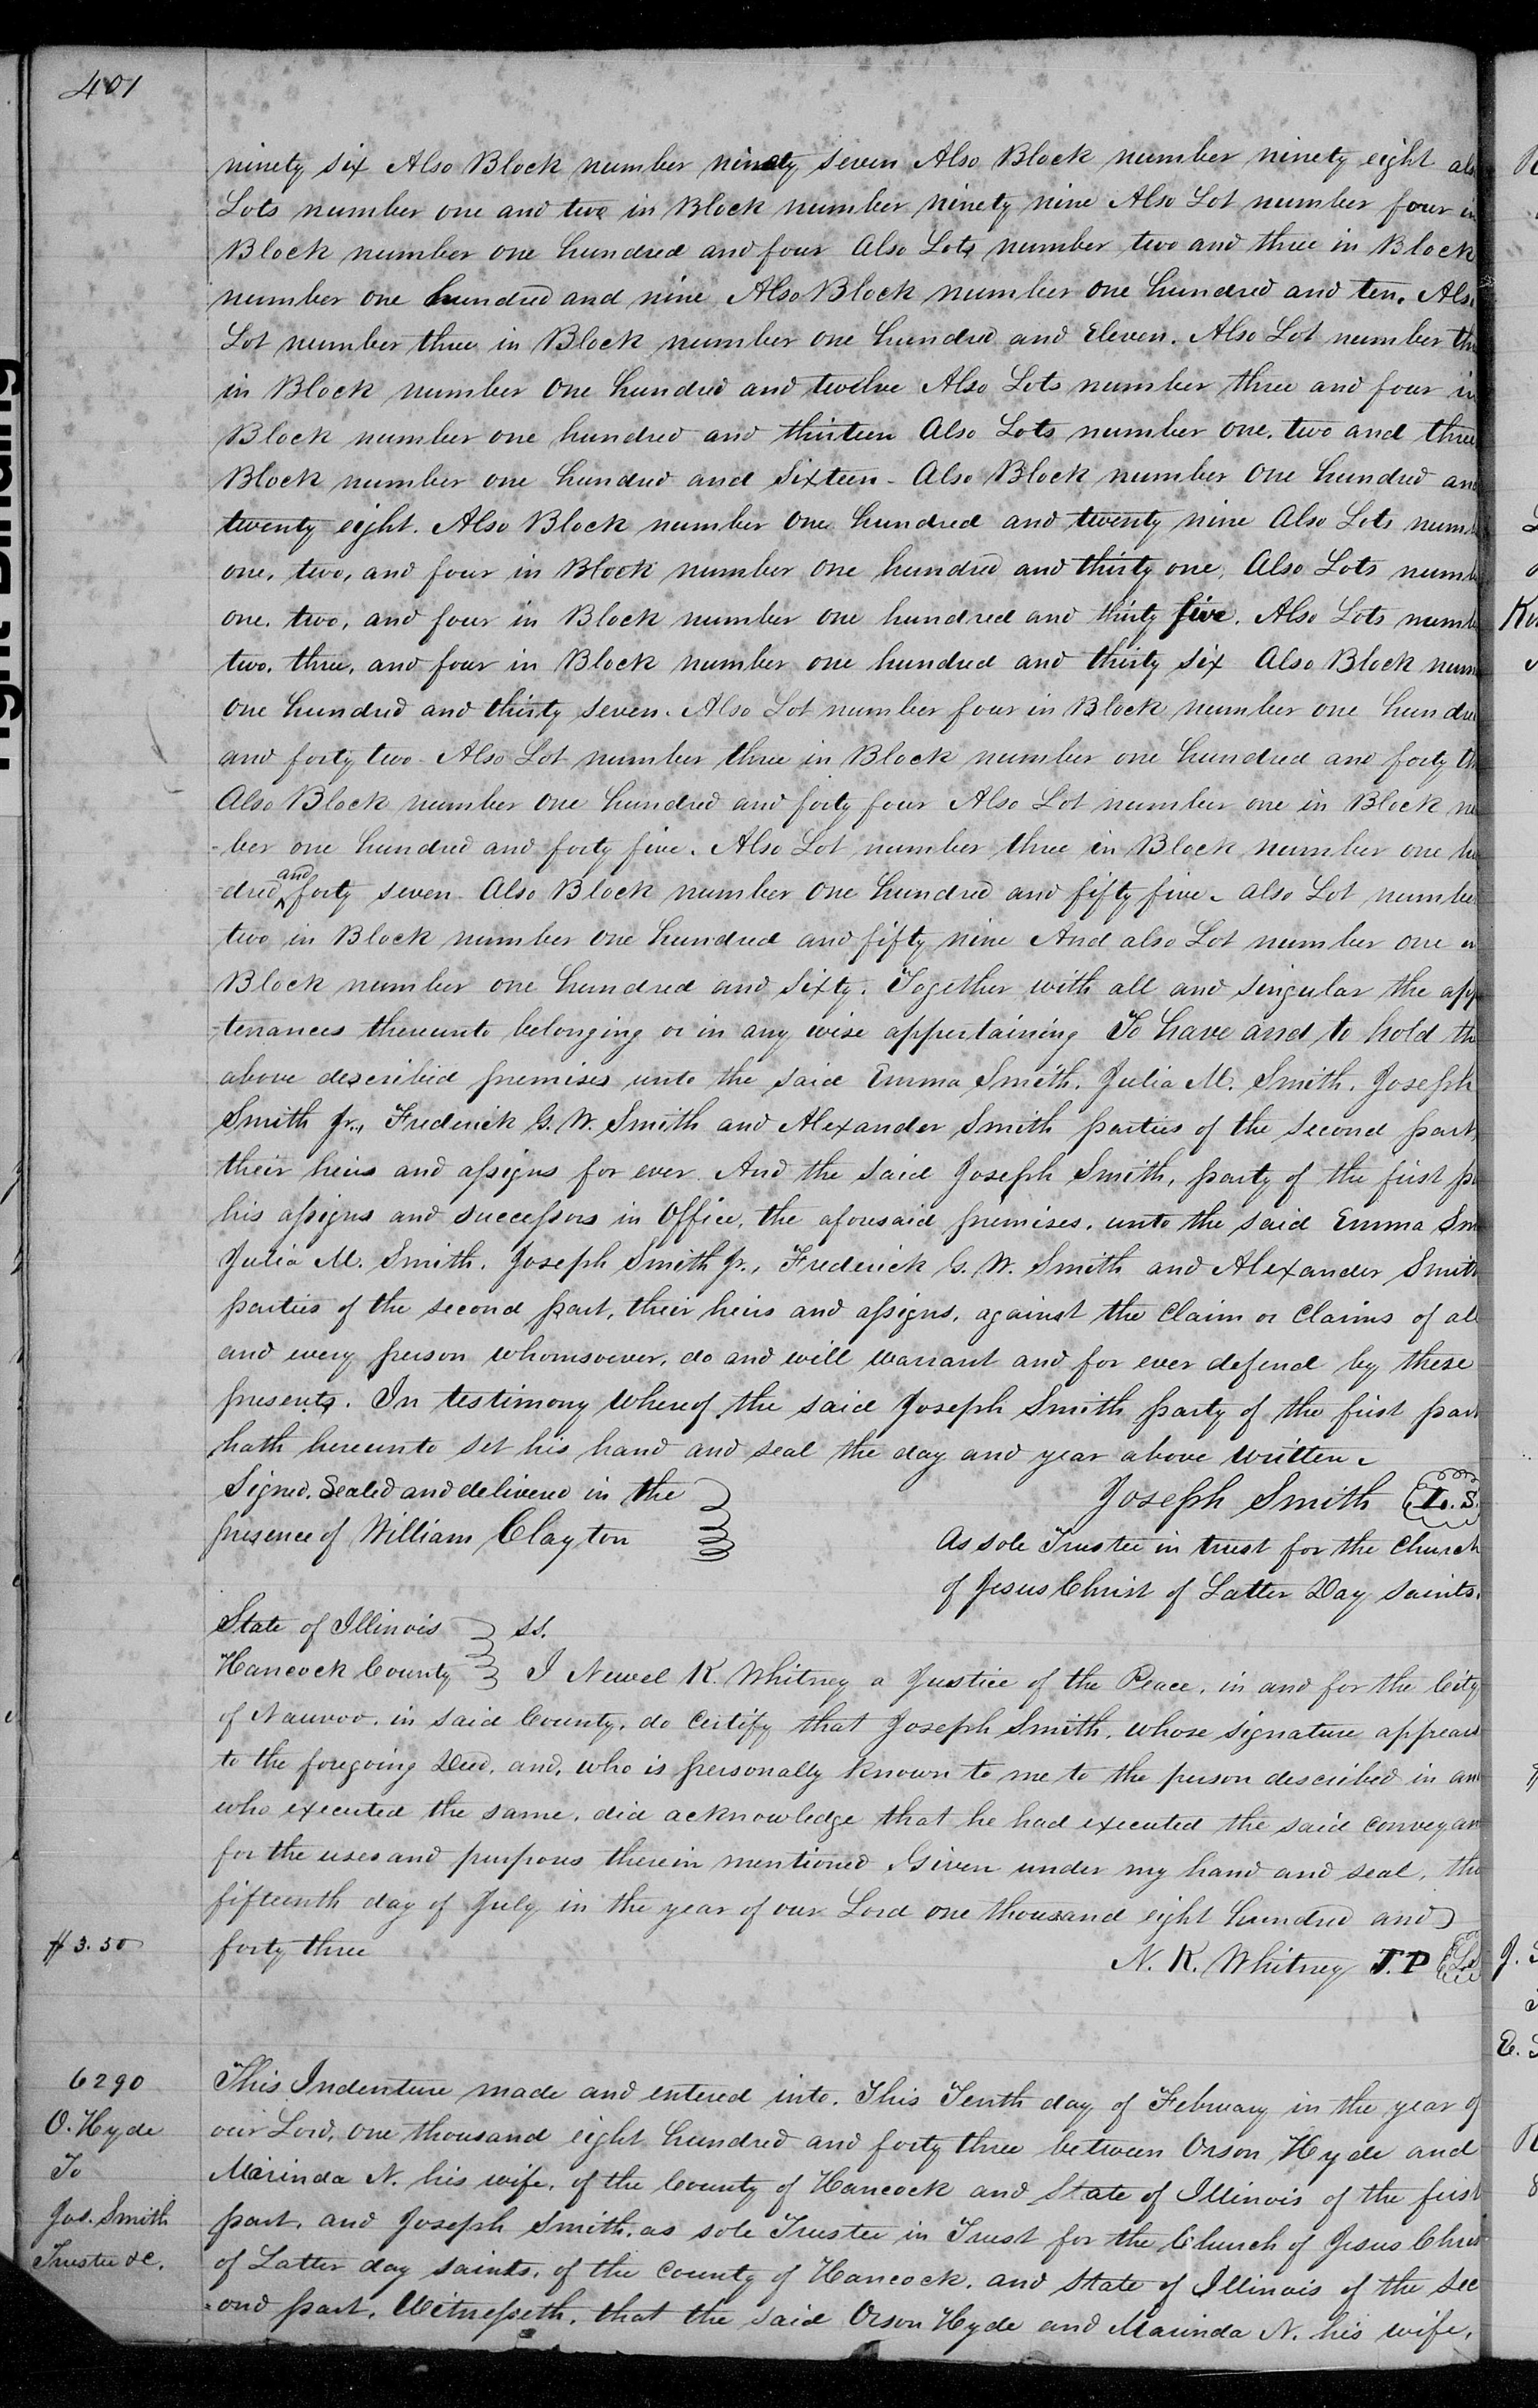 401
ninety six Also Block number ninety seven Also Block number ninety eight als
Lots number one and two in Block number ninety nine Also Lot number four in
Block number one hundred and four Also Lots number two and three in Block
number one hundred and nine Also Block number one hundred and ten. Als
Lot number three in Block number one hundred and Eleven. Also Lot number th
in Block number one hundred and twelve Also Lots number three and four in
Block number one hundred and thirteen Also Lots number one, two and three
Block number one hundred and Sixteen - Also Block number one hundred and
twenty eight. Also Block number one hundred and twenty nine Also Lots num
one, two, and four in Block number one hundred and thirty one, Also Lots numb
one, two, and four in Block number one hundred and thirty five. Also Lots numb
two, three, and four in Block number one hundred and thirty six Also Block num
one hundred and thirty seven. Also Lot number four in Block number one hundre
and forty two - Also Lot number three in Block number one hundred and forty th
Also Block number one hundred and forty four Also Lot number one in Block nu
-ber one hundred and forty five. Also Lot number three in Block number one hu
-dred and forty seven - Also Block number one hundred and fifty five - also Lot number
two in Block number one hundred and fifty nine And also Lot number one in
Block number one hundred and Sixty. Together with all and singular the app
-tenances thereunto belonging or in any wise appertaining To have and to hold the
above described premises unto the said Emma Smith, Julia M. Smith, Joseph
Smith Jr., Frederick G. W. Smith and Alexander Smith parties of the second part,
their heirs and assigns for ever. And the said Joseph Smith, party of the first pa
his assigns and successors in Office, the aforesaid premises, unto the said Emma Sm
Julia M. Smith, Joseph Smith Jr., Frederick G. W. Smith and Alexander Smith
parties of the second part, their heirs and assigns, against the Claim or Claims of all
and every person whomsoever, do and will warrant and for ever defend by these
presents. In testimony whereof the said Joseph Smith party of the first part
hath hereunto set his hand and seal the day and year above written.
Signed, Sealed and delivered in the
presence of William Clayton
Joseph Smith L. S.
As sole Trustee in trust for the Church
of Jesus Christ of Latter Day Saints.
State of Illinois ss.
Hancock County I Newel K. Whitney a Justice of the Peace, in and for the City
of Nauvoo, in said County, do certify that Joseph Smith, whose signature appears
to the foregoing Deed, and, who is personally known to me to the person described in and
who executed the same, did acknowledge that he had executed the said conveyan
for the uses and purposes therein mentioned Given under my hand and seal, the
fifteenth day of July in the year of our Lord one thousand eight hundred and
$3.50 forty three
N. K. Whitney J. P L.S
6290
O. Hyde
To
Jos. Smith
Trustee &c.
This Indenture made and entered into, This Tenth day of February in the year of
our Lord, one thousand eight hundred and forty three between Orson Hyde and
Marinda N. his wife, of the County of Hancock and State of Illinois of the first
part, and Joseph Smith, as sole Trustee in Trust for the Church of Jesus Christ
of Latter day saints, of the County of Hancock, and State of Illinois of the sec
-ond part, Witnesseth, that the said Orson Hyde and Marinda N. his wife,